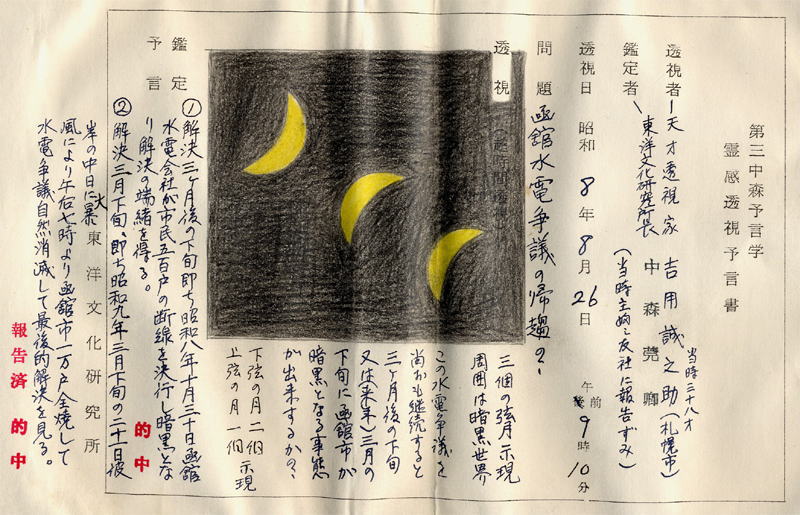 第三中森予言学
霊感透視予言書
透視者ー天才透視家 吉用誠之助(札幌市)
当時三十八才
鑑定者ー東洋文化研究所長 中森甍卿
(当時主婦之友社に報告ずみ)
透視日 昭和8年8月26日 午前9時10分
問題 函館水電争議の帰趨?
透視
三個の弦月示現
周囲は暗黒世界
この水電争議を
尚かも継続すると
三ケ月後の下旬
又は来年三月の
下旬に函館市が
暗黒となる事態
が出来するか?
下弦の月二個
上弦の月一個 示現
鑑定
予言
①解決三ケ月後の下旬即ち昭和八年十月三十日函館
水電会社が市民五百戸の断線を決行し暗黒とな
り解決の端緒を得る。 的中
②解決三月下旬、即ち昭和九年三月下旬の二十一日彼
岸の中日に大暴
風により午后七時より函館市一万戸全焼して
水電争議自然消滅して最後的解決を見る。
東洋文化研究所
報告済 的中